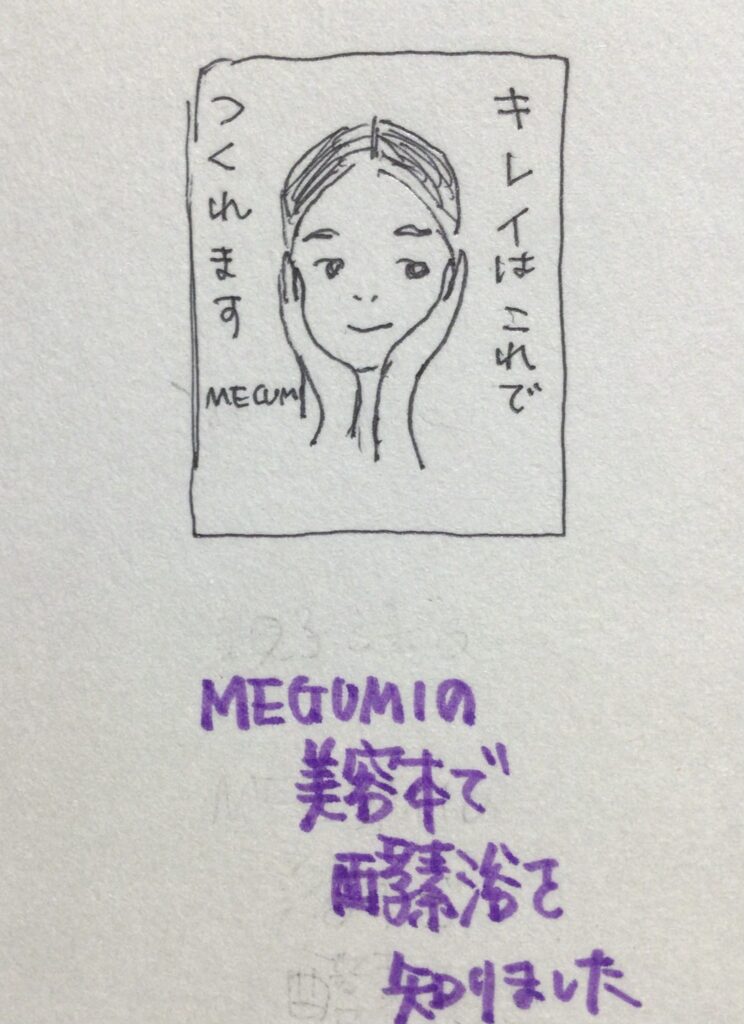 キレイはこれで
つくれます
MEGUMI
MEGUMIの
美容本で
酵素浴を
知りました